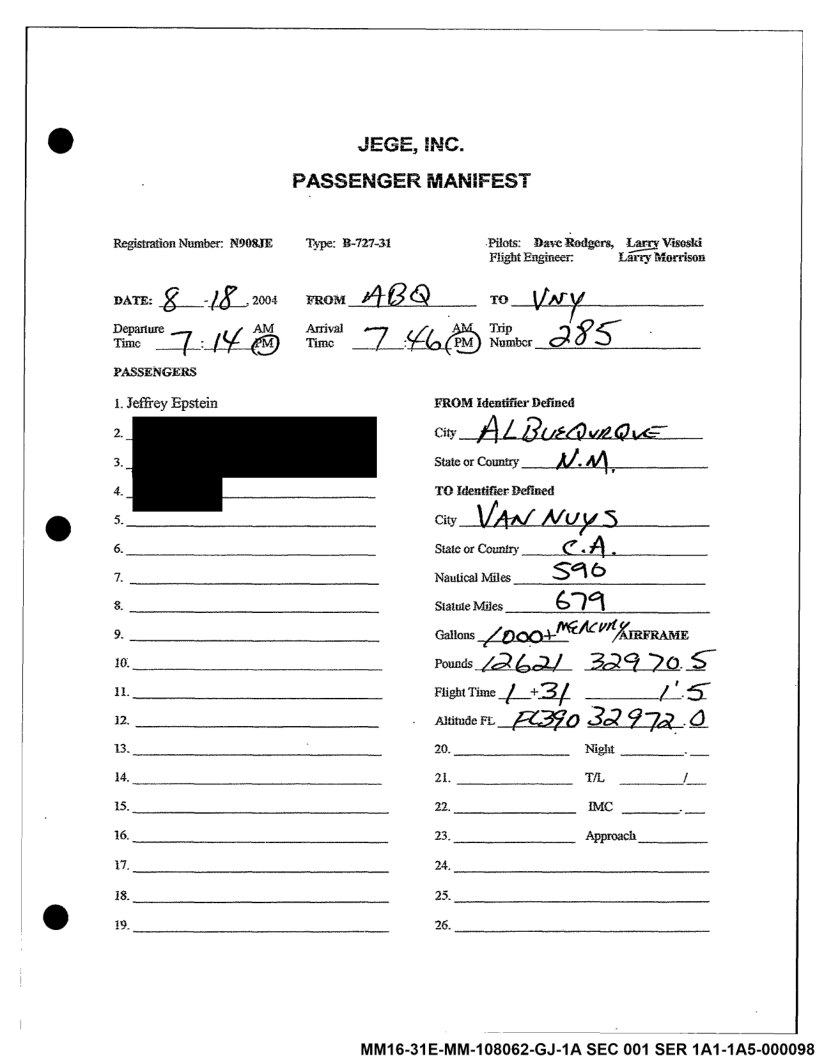 JEGE, INC.
PASSENGER MANIFEST
Registration Number: N908JE Type: B-727-31 Pilots: Dave Rodgers, Larry Visoski
Flight Engineer: Larry Morrison
DATE: 8 -18, 2004 FROM ABQ TO VNY
Departure Time 7:14 AM PM Arrival Time 7:46 AM PM Trip Number 285
PASSENGERS
1. Jeffrey Epstein FROM Identifier Defined
2. City ALBUEQURQUE
3. State or Country N.M.
4. TO Identifier Defined
5. City VAN NUYS
6. State or Country C.A.
7. Nautical Miles 590
8. Statute Miles 679
9. Gallons 1000+ MERCURY/AIRFRAME
10. Pounds 12621 32970.5
11. Flight Time 1 +31 1.5
12. Altitude FL FL390 32972.0
13. 20. Night .
14. 21. T/L /
15. 22. IMC .
16. 23. Approach
17. 24.
18. 25.
19. 26.
MM16-31E-MM-108062-GJ-1A SEC 001 SER 1A1-1A5-000098